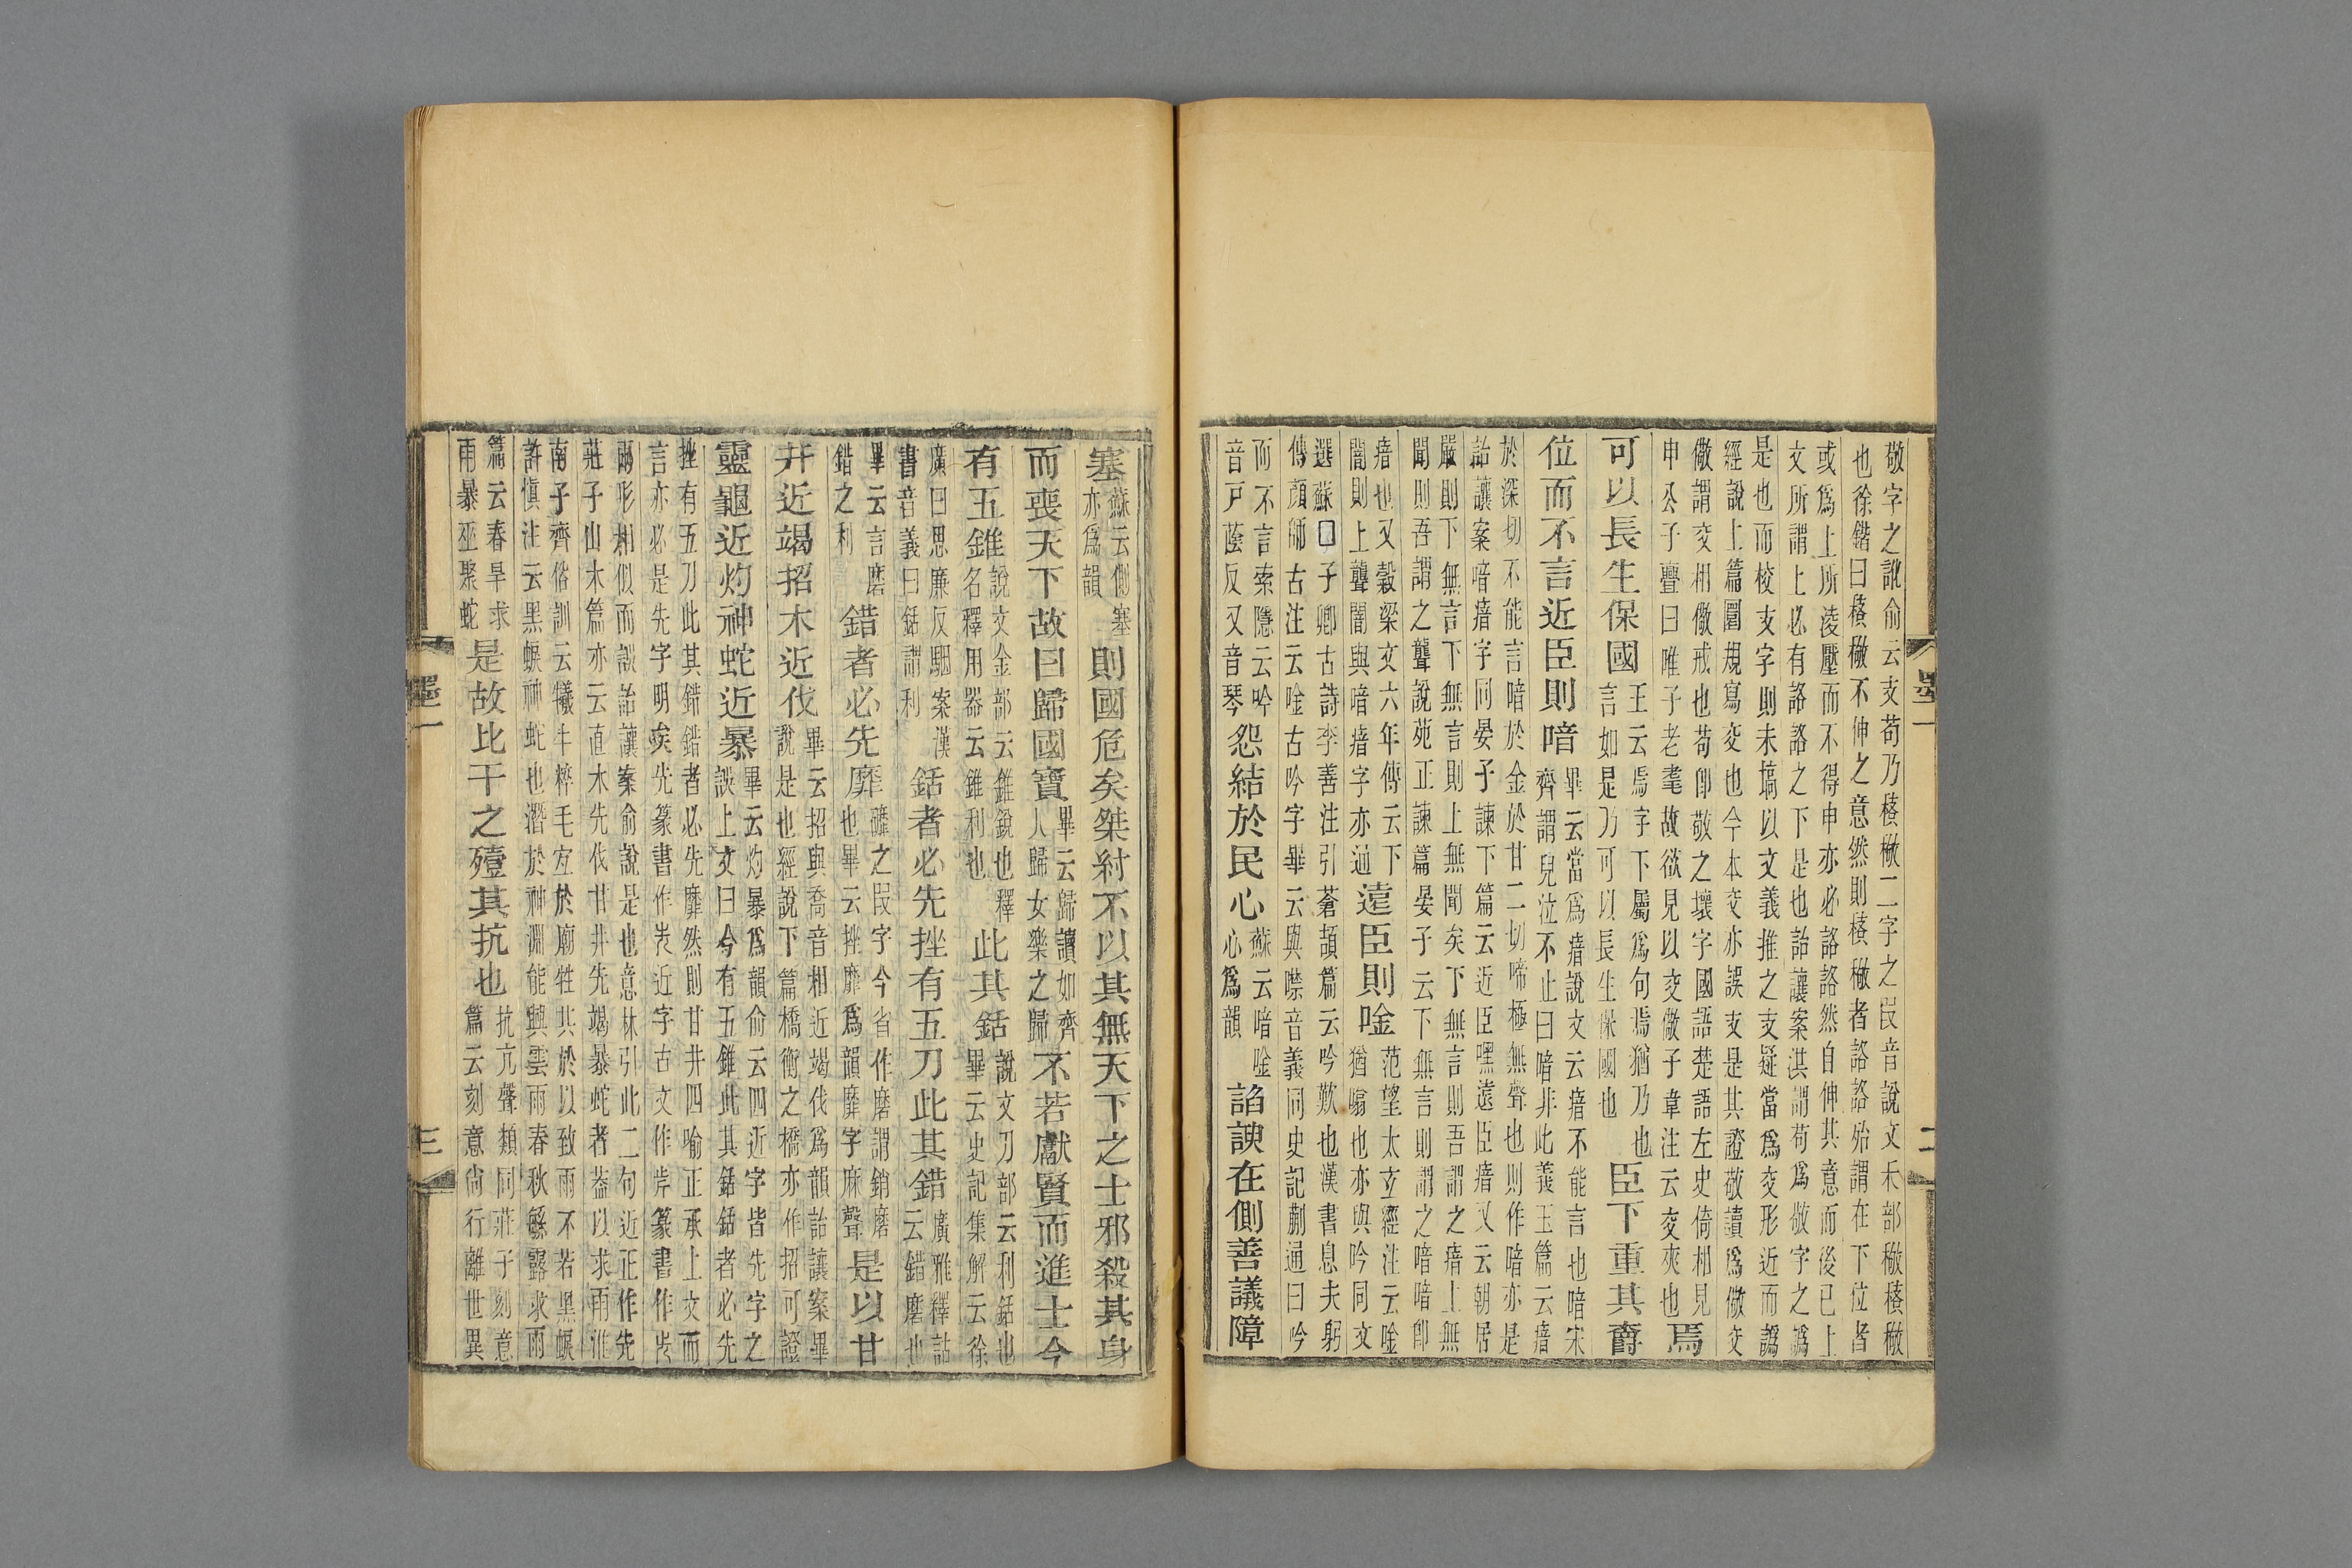 敬字之譌俞云支苟乃𥠻䅩二字之叚音說文禾部䅩𥠻䅩
也徐鍇曰𥠻䅩不伸之意然則𥠻䅩者詻詻殆謂在下位者
或爲上所淩壓而不得申亦必詻詻然自伸其意而後已上
文所謂上必有詻詻之下是也詒讓案洪謂苟爲敬字之譌
是也而校支字則未塙以文義推之支疑當爲交形近而譌
經說上篇圜規寫交也今本交亦誤支是其證敬讀爲儆交
儆謂交相儆戒也苟卽敬之壞字國語楚語左史倚相見
申公子亹曰唯子老耄故欲見以交儆子韋注云交夾也焉
可以長生保國王云焉字下屬爲句焉猶乃也言如是乃可以長生保國也臣下重其爵
位而不言近臣則喑畢云當爲瘖說文云瘖不能言也喑宋齊謂兒泣不止曰喑非此義玉篇云瘖
於深切不能言喑於金於甘二切啼極無聲也則作喑亦是
詒讓案喑瘖字同晏子諫下篇云近臣嘿遠臣瘖又云朝居
嚴則下無言下無言則上無聞矣下無言則吾謂之瘖上無
聞則吾謂之聾說苑正諫篇晏子云下無言則謂之喑喑卽
瘖也又穀梁文六年傳云下闇則上聾闇與喑瘖字亦通遠臣則唫范望太玄經注云唫猶噏也亦與吟同文
選蘇子卿古詩李善注引蒼頡篇云吟歎也漢書息夫躬
傳顏師古注云唫古吟字畢云與噤音義同史記蒯通曰吟
而不言索隱云吟音戸蔭反又音琴怨結於民心蘇云喑唫心爲韻諂諛在側善議障
墨一
二
塞蘇云側塞亦爲韻則國危矣桀紂不以其無天下之士邪殺其身
而喪天下故曰歸國寶畢云歸讀如齊人歸女樂之歸不若獻賢而進士今
有五錐說文金部云錐銳也釋名釋用器云錐利也此其銛說文刀部云利銛也畢云史記集解云徐
廣曰思廉反駰案漢書音義曰銛謂利銛者必先挫有五刀此其錯廣雅釋詁云錯磨也
畢云言磨錯之利錯者必先靡䃺之叚字今省作磨謂銷磨也畢云挫靡爲韻靡字麻聲是以甘
井近竭招木近伐畢云招與喬音相近竭伐爲韻詒讓案畢說是也經說下篇橋衡之橋亦作招可證
靈龜近灼神蛇近暴畢云灼暴爲韻俞云四近字皆先字之誤上文曰今有五錐此其銛銛者必先
挫有五刀此其錯錯者必先靡然則甘井四喻正承上文而
言亦必是先字明矣先篆書作𠑹近字古文作岸篆書作㞢
兩形相似而誤詒讓案俞說是也意林引此二句近正作先
莊子山木篇亦云直木先伐甘井先竭暴蛇者蓋以求雨淮
南子齊俗訓云犧牛粹毛宜於廟牲其於以致雨不若黑蜧
許愼注云黑蜧神蛇也潛於神淵能興雲雨春秋繇露求雨
篇云春旱求雨暴巫聚蛇是故比干之殪其抗也抗亢聲類同莊子刻意篇云刻意尙行離世異
墨一
三